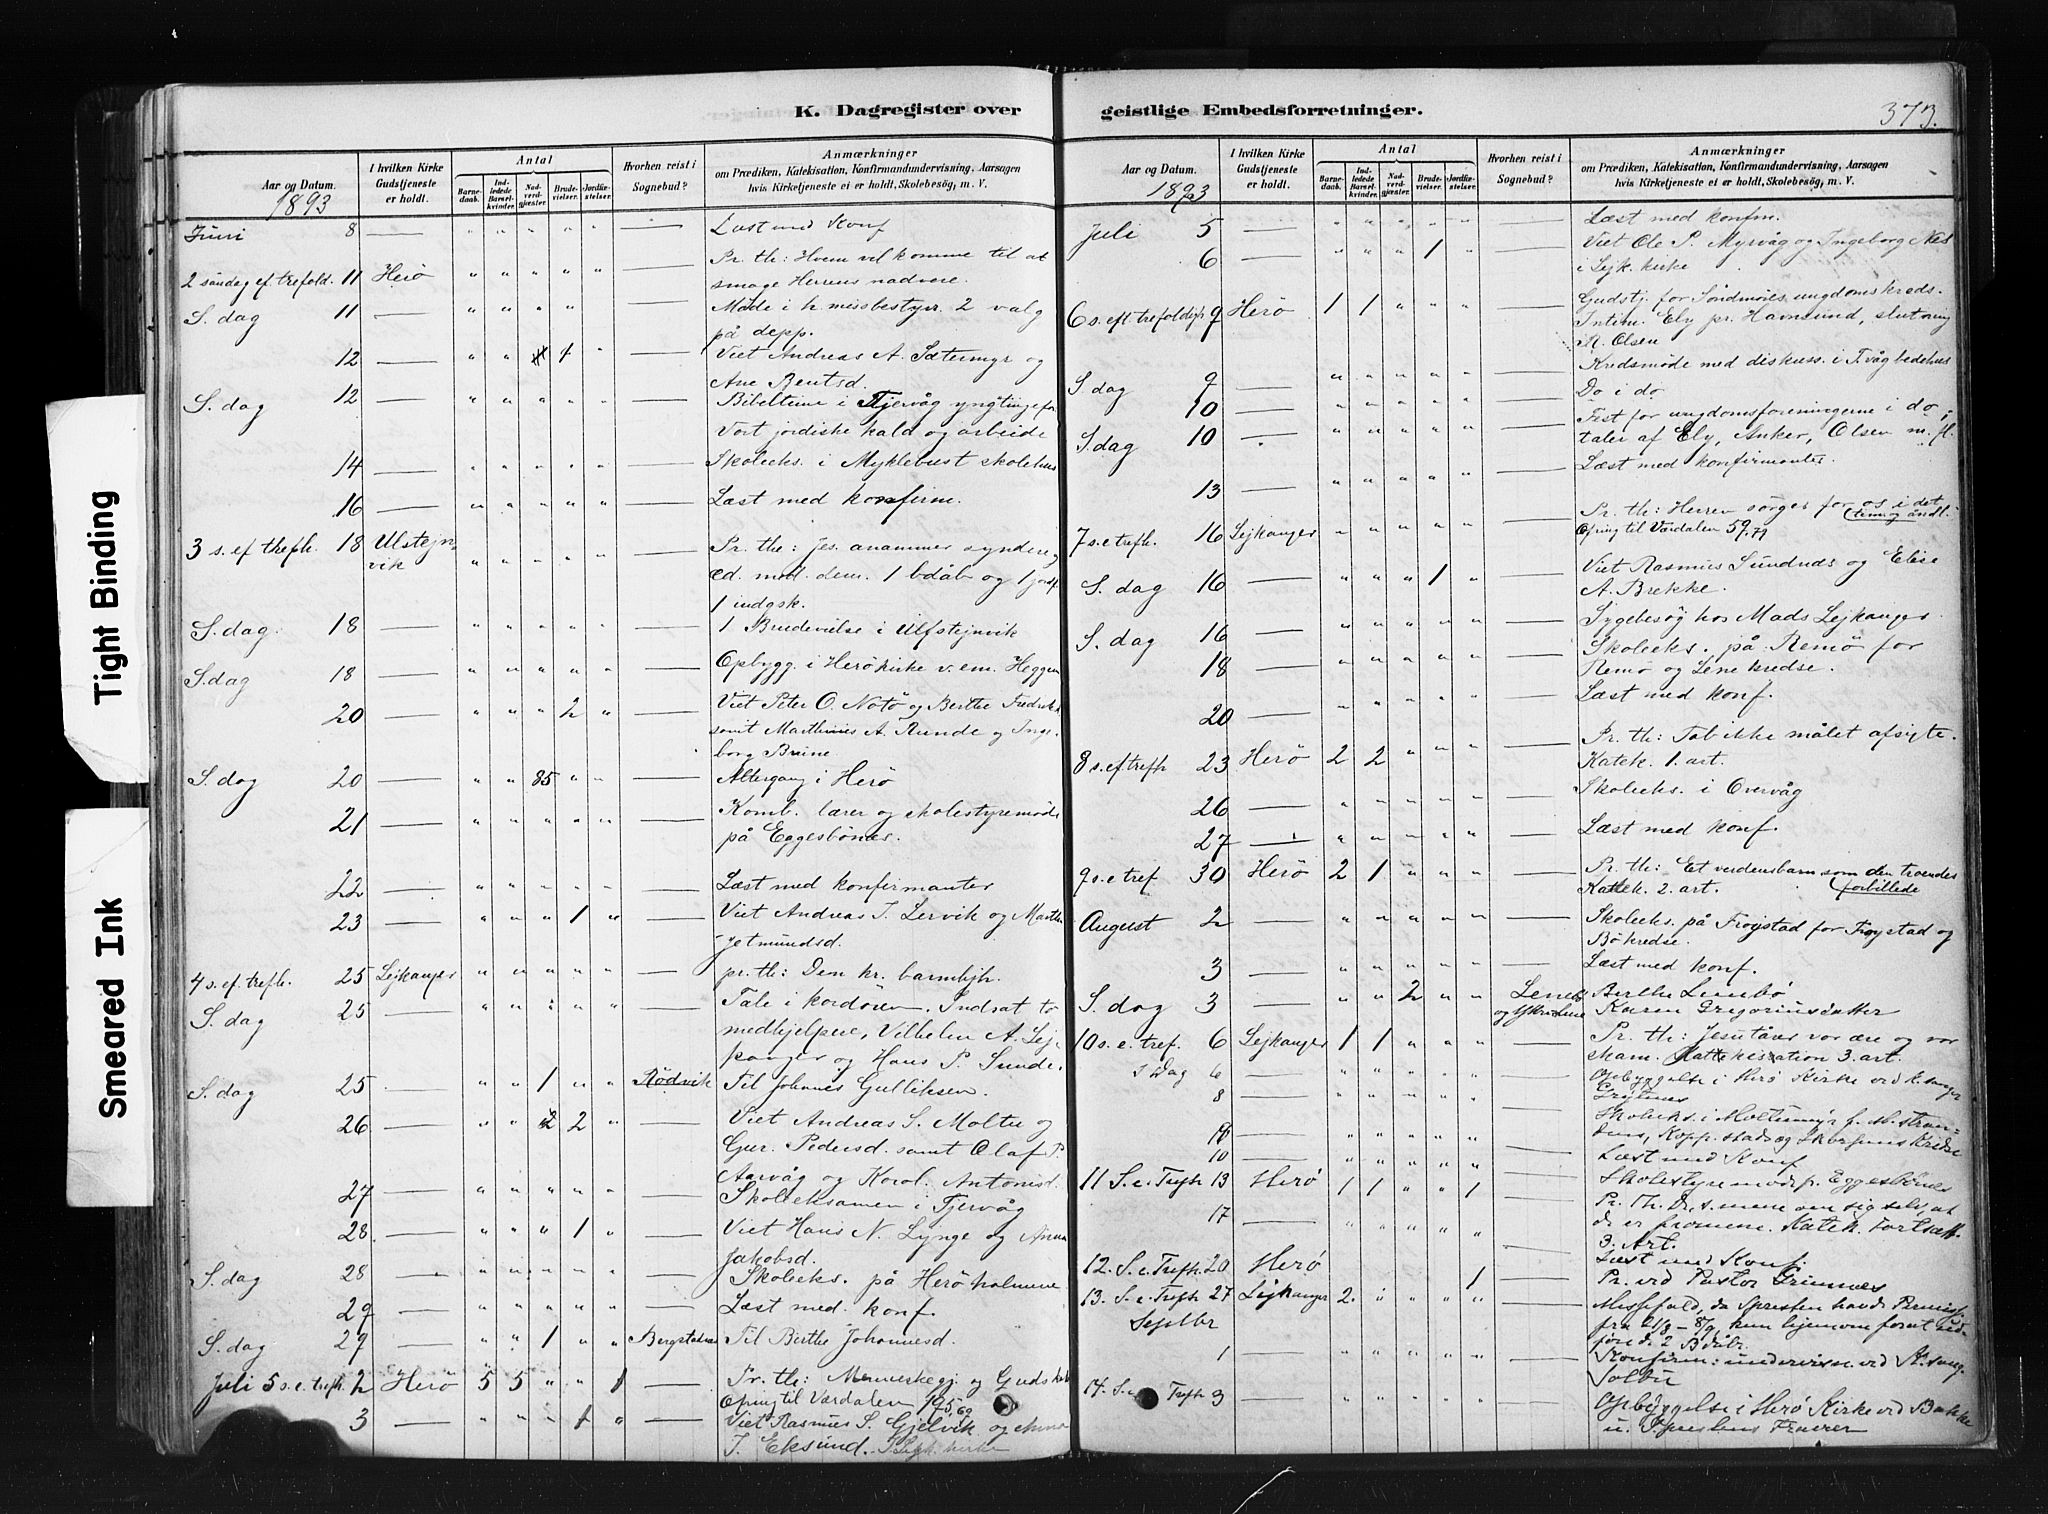 K. Dagregister over
Aar og Datum.
1893
I hvilken Kirke Gudstjeneste er holdt.
Antal
Barnedaab.
Indledede Barselkvinder.
Nadverdgjæster.
Brudevielser.
Jordfæstelser.
Hvorhen reist i Sognebud?
Anmærkninger
om Prædiken, Katekisation, Konfirmandundervisning, Aarsagen
hvis Kirketjeneste ei er holdt, Skolebesøg, m. V.
Juni 8 Læst med Konf
2 søndag ef. trefold. 11 Herö Pr. th: Hvem vil komme til at
smage Herrens nadvere.
S. dag 11 Möde i h missbestyrr. 2 valg
på depp.
12 Viet Andreas A. Sætermyr og
Ane Bentsd.
S. dag 12 Bibeltime i Tjervåg
Vort jordiske kald og arbeide
14 Skoleeks. i Myklebust skolehus
16 Læst med konfirm.
3 s. ef trefh. 18 Ulstejnvik Pr. th: Jes. anammer syndere
æd. med dem. 1 bdåb og 1 jordf.
1 indgsk.
S. dag 18 1 Brudevielse i Ulfstejnvik
S. dag 18 Opbygg. i Herö kirke v. em. Heggen
20 Viet Peter O. Notö og Berthe Fredriks
samt Marthinus A. Runde og Inge-
borg Brune
S. dag 20 85 Altergang i Herö
21 Komb. lærer og skolestyremöde
på Eggesbönes.
22 Læst med konfirmanter
23 1 Viet Andreas I. Lervik og Marthe
Jetmundsd.
4 s. ef. trefh. 25 Lejkanger pr. th: Den kr. barmhjh.
S. dag 25 Tale i kordören. Indsat to
medhjelpere, Vilhelm A. Lej-
kanger og Hans P. Sunde.
S. dag 25 1 Rödvik Til Johannes Gulliksen.
26 2 2 Viet Andreas S. Moltu og
Gur. Pedersd. samt Olaf P.
Aarvåg og Karol. Antonisd.
27 Skoleeksamen i Tjervåg
28 1 Viet Hans N. Lynge og Anna
Jakobsd.
S. dag 28 Skoleeks. på Heröholmene
29 Læst med konf.
S. dag 29 1 Til Berthe Johannesd.
Juli 5 s. e. trefh. 2 Herö 5 5 1 Pr. th: Menneskegj og Guds
Opring til Værdalen
3 1 Viet Rasmus S. Gjelvik og Anne
I. Eksund.
geistlige Embedsforretninger.
373.
Aar og Datum.
1893
I hvilken Kirke Gudstjeneste er holdt.
Antal
Barnedaab.
Indledede Barselkvinder.
Nadverdgjæster.
Brudevielser.
Jordfæstelser.
Hvorhen reist i Sognebud?
Anmærkninger
om Prædiken, Katekisation, Konfirmandundervisning, Aarsagen
hvis Kirketjeneste ei er holdt, Skolebesøg, m. V.
Juli 5 Læst med konfm.
6 1 Viet Ole P. Myrvåg og Ingeborg Nes
i Lejk. kirke
6 s. eft. trefoldigh 9 Herö 1 1 Gudstj. for Söndmöres ungdomskreds.
Intim. Ely pr. Havnsund, slutning
M. Olsen
S dag 9 Kredsmöde med diskuss. i T.våg bedehus
10 Do i do
S dag 10 Fest for ungdomsforeningerne i do,
taler af Ely, Anker, Olsen m. fl.
13 Læst med konfirmanter
7 s. e trefh. 16 Lejkanger Pr. th: Herren sörger for os i det
Opring til Værdalen 59
S. dag 16 1 Viet Rasmus Sundnæs og Elise
A. Brekke.
S. dag 16 Sygebesög hos Mads Lejkanger
18 Skoleeks. på Remö for
Remö og Lene kredse.
20 Læst med konf.
8 s. ef trefh 23 Herö 2 2 Pr. th: Tab ikke målet afsyte.
Katek. 1. art.
26 Skoleeks. i Overvåg
27 Læst med konf.
9 s. e tref 30 Herö 2 1 Pr. th: Et verdensbarn som den troendes
forbillede
Katek. 2. art.
August 2 Skoleeks. på Fröystad for Fröystad og
Bö kredse.
3 Læst med konf.
S. dag 3 2 Berthe Lembö
Karen Gregoriusdatter
10 s. e. tref. 6 Lejkanger 1 1 Pr. th: Jesu tårer vor ære og vor
skam. Kattekisation 3. art.
S Dag 6 Opbyggelse i Herö Kirke ved K.sanger
Grytnes
8 Skoleeks. i Moltumyr f. M.stran-
dens, Kopp.stads og Skorpens Kredse
10 Læst med Konf
11 S. e. Trefh 13 Herö 1 1 1 Skolestyremöde p. Eggesbönes
Pr. Th. De, s. mene om sig selv, at
de er fromme. Katek. Fortsatt.
3. Art.
17 Læst med Konf.
12. S. e. Trefh 20 Herö 1 Pr. ved Pastor Grimnæs
13. S. e. Trefh 27 Lejkanger 2 Messefald, da Sprsten havde Permiss.
fra 21/8 – 8/9, kun hjemme
2 Bdåb.
Septbr 1 Konfirm: undervisn. ved K.sang.
Solbu
14. S. e Trefh 3 Opbyggelse i Herö Kirke ved Bakke
u. Sprestens Fravær
Tight Binding
Smeared Ink